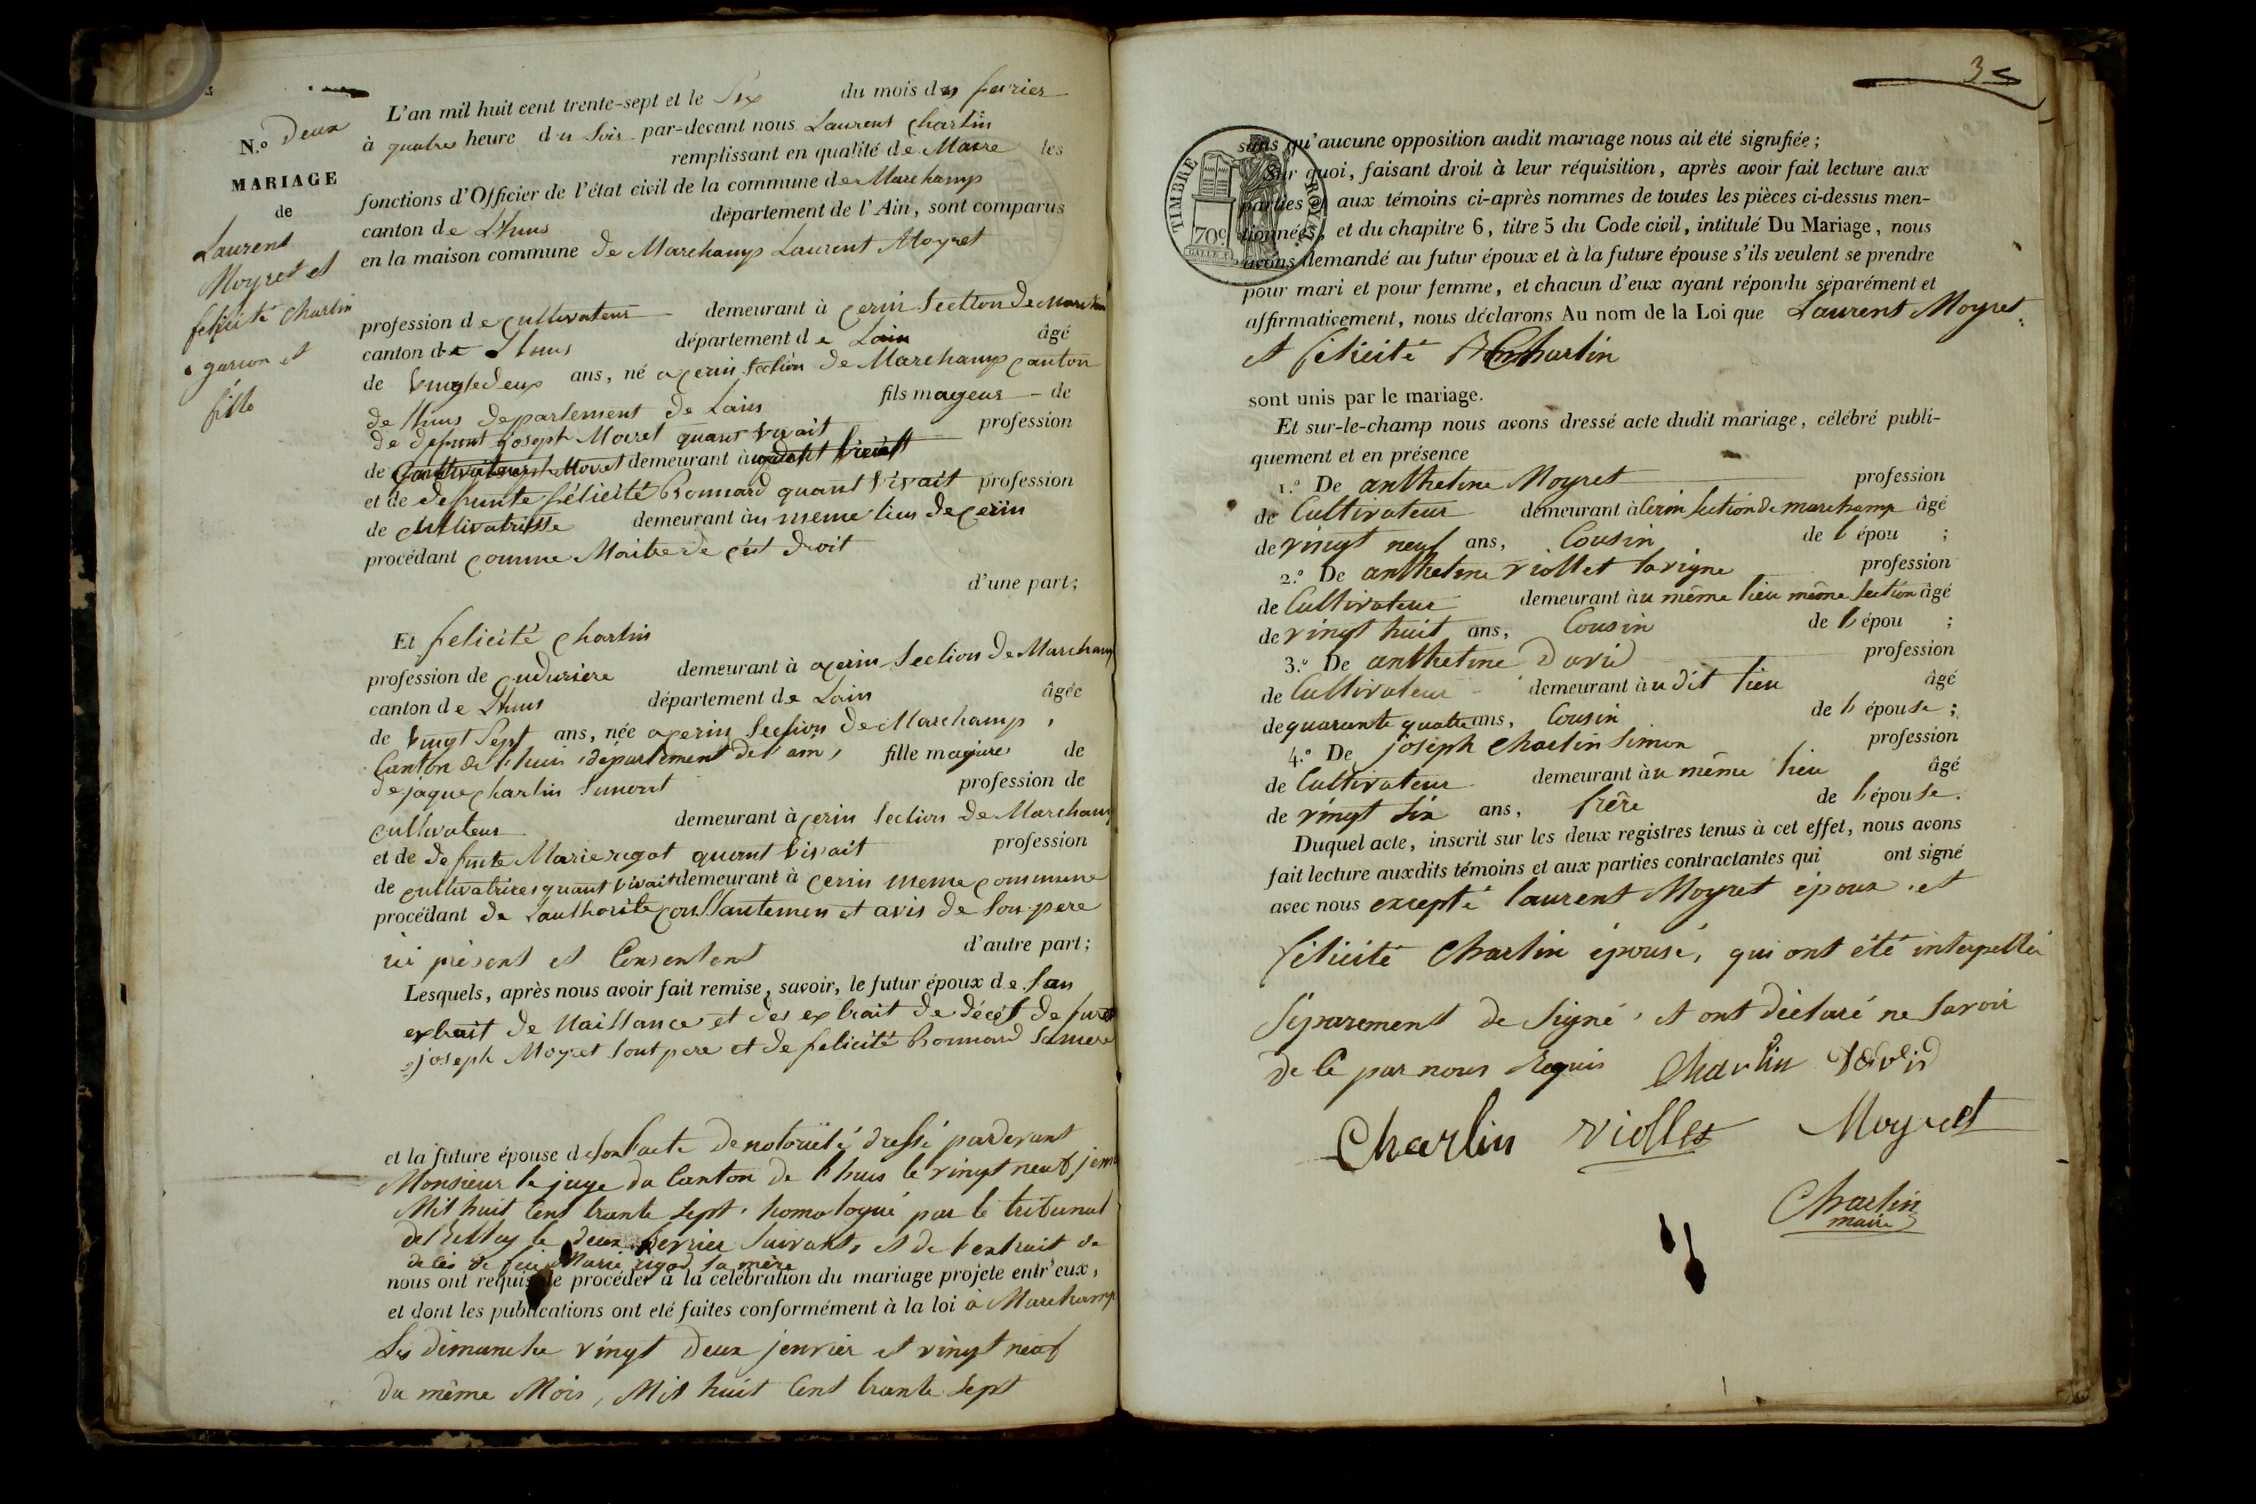 L'an mil huit cent trente-sept et le Six du mois de fevrier
N.º Deux
à quatre heure du Soir par-devant nous Laurent Charlin
remplissant en qualité de Maire les
MARIAGE
fonctions d'Officier de l'état civil de la commune de Marchamp
de
canton de Lhuis département de l'Ain, sont comparus
Laurent
en la maison commune de Marchamp Laurent Moyret
Moyret et
félicité Charlin
garson et
fille
profession de cultivateur demeurant à Cerin Section de
canton de Lhuis département de Lain âgé
de Vingtedeux ans, né a Cerin Section de Marchamp Canton
de Lhuis Departement de Lain fils mageur de
de defunt joseph Moiret quant vivait profession
de demeurant à
et de defunte félicité Bonnard quant vivait profession
de cultivatrisse demeurant àu meme lieu de Cerin
procédant comme Maitre de cest droit
d'une part;
Et felicité Charlin
profession de demeurant à a Cerin Section de Marchamp
canton de Lhuis département de Lain âgée
de Vingt Sept ans, née a Cerin Section de Marchamp,
Canton de l'huis, département de l'ain, fille majure de
de jaque Charlin Simont profession de
cultivateur demeurant à Cerin Section de Marchamp
et de defunte Marie rigot quant vivait profession
de cultivatrice quant vivait demeurant à Cerin meme commune
procédant de Lauthorité et avis de Son pere
ici présent et Consentent d'autre part;
Lesquels, après nous avoir fait remise, savoir, le futur époux de San
extrait de Naissance et des extrait de décès de
joseph Moyret Sont pere et de felicité Bonnard Samere
et la future épouse de son l'acte de notorieté, dressé pardevant
Monsieur le juge du Canton de l'huis le vingt neuf
Mil huit Cent trante Sept, homologué par le tribunal
de Bellay le deux fevrier Suivant, et de l'extrait de
décès de feue Marie rigod sa mère
nous ont requis de procéder à la célébration du mariage projeté entr'eux,
et dont les publications ont été faites conformément à la loi à Marchamp
Les dimanche vingt deux jenvier et vingt neuf
du même Mois, Mil huit Cent trante Sept
3
TIMBRE ROYAL
70c
sans qu'aucune opposition audit mariage nous ait été signifiée;
Sur quoi, faisant droit à leur réquisition, après avoir fait lecture aux
parties et aux témoins ci-après nommés de toutes les pièces ci-dessus men-
tionnées, et du chapitre 6, titre 5 du Code civil, intitulé Du Mariage, nous
avons demandé au futur époux et à la future épouse s'ils veulent se prendre
pour mari et pour femme, et chacun d'eux ayant répondu séparément et
affirmativement, nous déclarons Au nom de la Loi que Laurent Moyret
et félicité Charlin
sont unis par le mariage.
Et sur-le-champ nous avons dressé acte dudit mariage, célébré publi-
quement et en présence
1.º De anthelme Moyret profession
de Cultivateur demeurant à Cerin Section de marchamp âgé
de vingt neuf ans, Cousin de l'épou ;
2.º De anthelme viollet lavigne profession
de Cultivateur demeurant àu même lieu même Section âgé
de vingt huit ans, Cousin de l'épou ;
3.º De anthelme David profession
de Cultivateur demeurant àu dit lieu âgé
de quarante quatre ans, Cousin de l'épouse ;
4.º De joseph Charlin Simon profession
de Cultivateur demeurant àu même lieu âgé
de vingt six ans, frère de l'épouse.
Duquel acte, inscrit sur les deux registres tenus à cet effet, nous avons
fait lecture auxdits témoins et aux parties contractantes qui ont signé
avec nous excepté laurent Moyret époux, et
félicité Charlin épouse, qui ont été interpellé
Séparement de Signé, et ont déclaré ne Savoir
de Ce par nous Requis Charlin David
Charlin Viollet Moyret
Charlin
maire